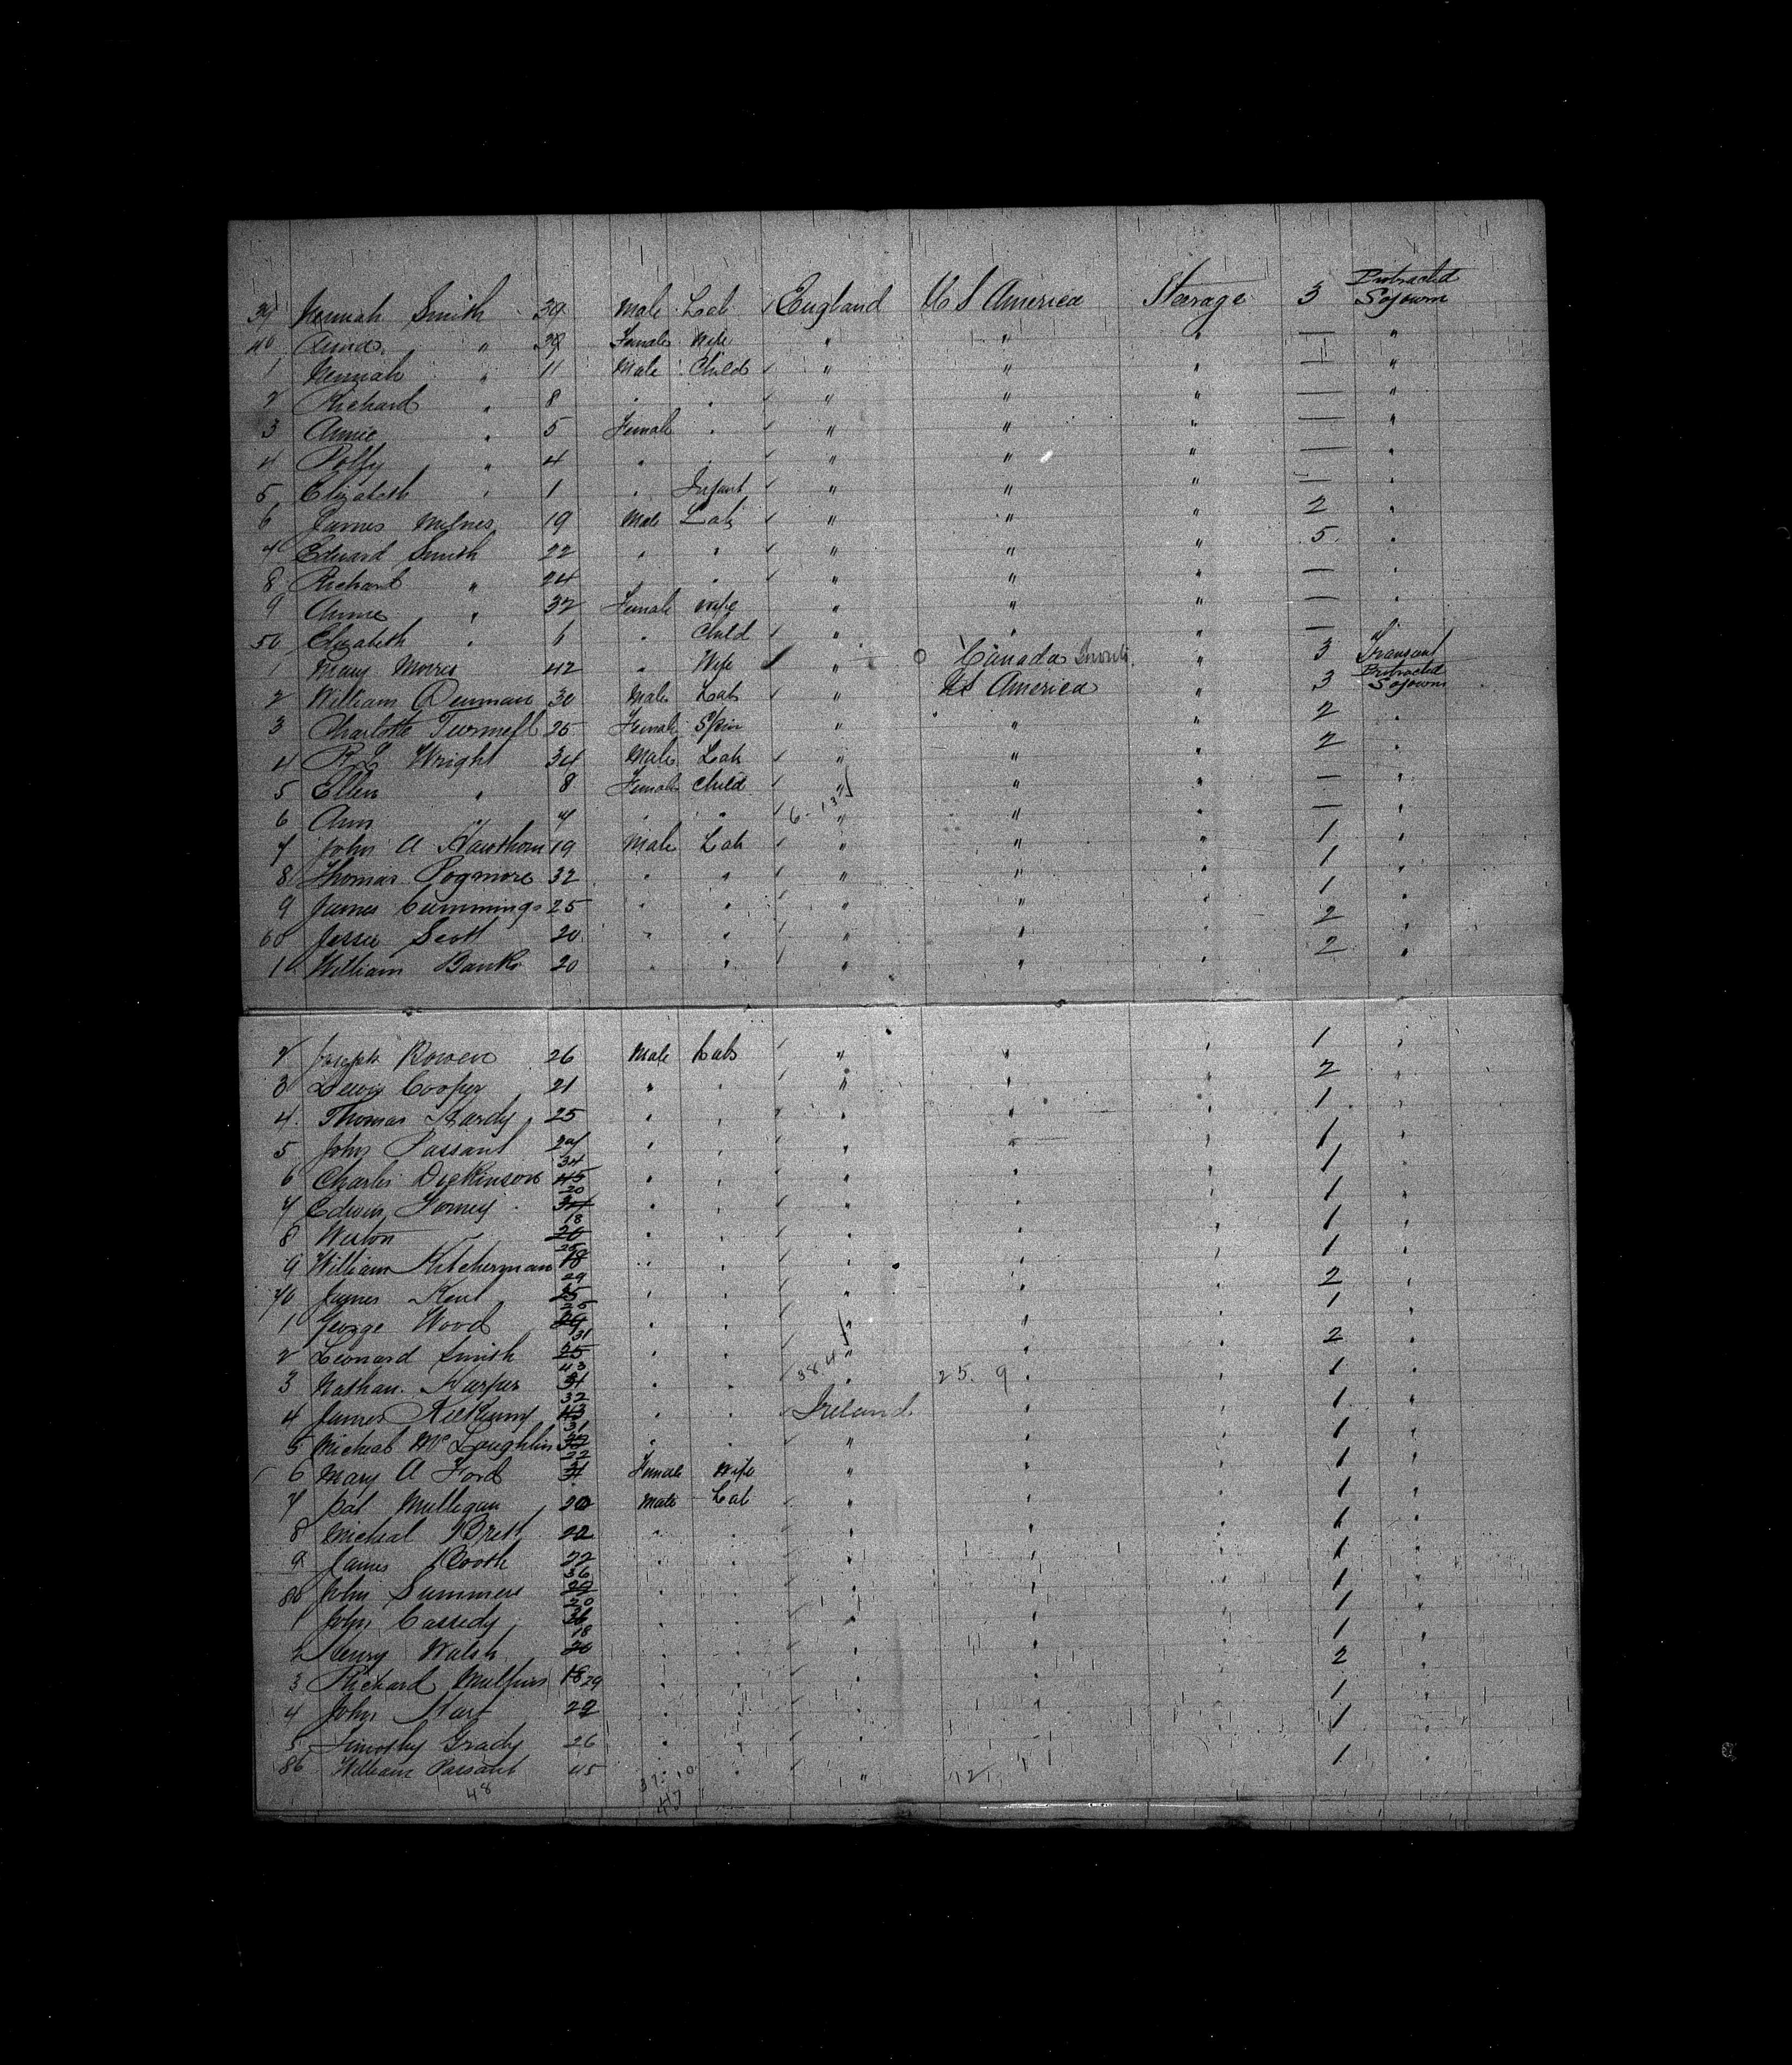 39 Smith 39 Male Lab England U S America Steerage 3 Protracted Sojourn
40 " 39 Female Wife " " " — "
1 " 11 Male Child " " " — "
2 Richard " 8 " " " " " — "
3 Annie " 5 Female " " " " — "
4 Polly " 4 " " " " " — "
5 Elizabeth " 1 " Infant " " " — "
6 James Milnes 19 Male Lab " " " 2 "
7 Edward Smith 22 " " " " " 5 "
8 Richard " 24 " " " " " — "
9 Annie " 32 Female Wife " " " — "
50 Elizabeth " Child " " " — "
1 Mary Morris 42 " Wife " Canada " 3 Transient
2 William Denman 30 Male Lab " U S America " 3 Protracted Sojourn
3 Charlotte 25 Female Spin " " " 2 "
4 R L Wright 34 Male Lab " " " 2 "
5 Ellen " 8 Female Child " " " — "
6 Ann " 7 " " " " " — "
7 John A Hawthorn 19 Male Lab " " " 1 "
8 Thomas Pogmore 32 " " " " " 1 "
9 James Cummings 25 " " " " " 1 "
60 Jessie Scott 20 " " " " " 2 "
1 William Banks 20 " " " " " 2 "
2 Joseph Bowen 26 Male Lab " " " 1 "
3 Lewis Cooper 21 " " " " " 2 "
4 Thomas Hardy 25 " " " " " 1 "
5 John Passant 27 " " " " " 1 "
6 Charles Dickinson 34 " " " " " 1 "
7 Edwin 20 " " " " " 1 "
8 18 " " " " " 1 "
9 William Kitcherman " " " " " 1 "
70 James Kent 29 " " " " " 2 "
1 George Wood 25 " " " " " 1 "
2 Leonard Smith 31 " " " " " 2 "
3 Nathan Harper 43 " " " 25. 9 " " 1 "
4 James Kilkenny 32 " " Ireland " " 1 "
5 Micheal McLoughlin 31 " " " " " 1 "
6 Mary A Ford 22 Female Wife " " " 1 "
7 Pat Mulligan 20 Male Lab " " " 1 "
8 Micheal Brett 22 " " " " " 1 "
9 James Booth 22 " " " " " 1 "
80 John Summers 36 " " " " " 1 "
1 John Cassedy 20 " " " " " 1 "
2 Henry Walsh 18 " " " " " 1 "
3 Richard 29 " " " " " 2 "
4 John Hart 22 " " " " " 1 "
5 Timothy Grady 26 " " " " " 1 "
86 William Passant 45 " " " 1 "
48 47